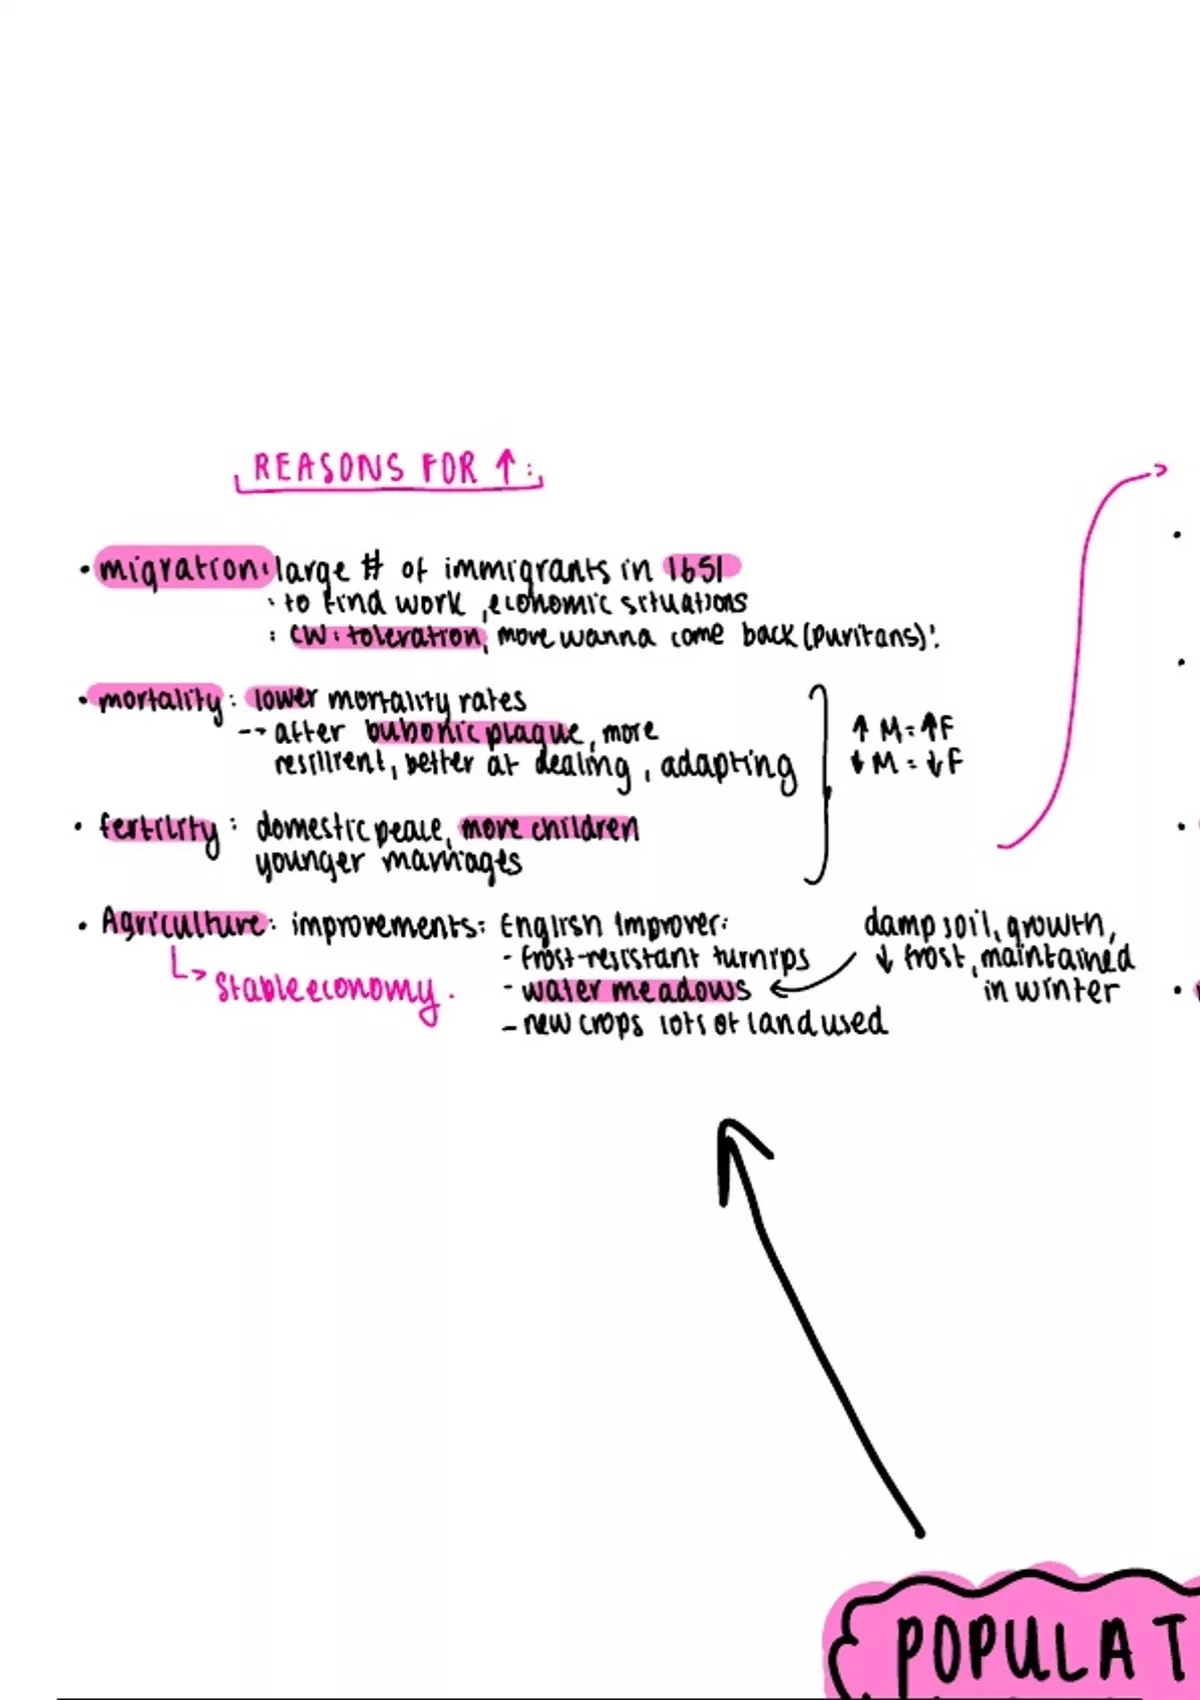 REASONS FOR ↑:
• migration: large # of immigrants in 1651
· to find work, economic situations
: CW: toleration, more wanna come back (Puritans)!
• mortality: lower mortality rates
--> after bubonic plague, more
resilient, better at dealing, adapting
↑ M = ↑ F
↓ M = ↓ F
• fertility: domestic peace, more children
younger marriages
• Agriculture: improvements: English Improver:
↳ Stable economy.
- frost-resistant turnips
- water meadows
- new crops lots of land used
damp soil, growth,
↓ frost, maintained
in winter
POPULAT